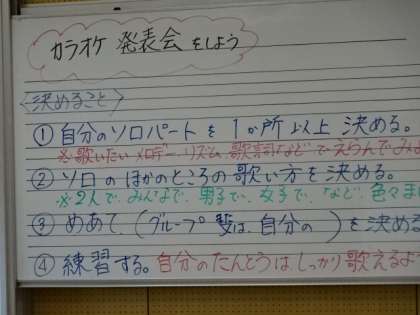 カラオケ 発表会 をしよう
〈決めること〉
① 自分のソロパートを1か所以上 決める。
※歌いたいメロデー、リズム、歌詞などでえらんでみ
② ソロのほかのところの歌い方を決める。
※2人で、みんなで、男子で、女子で、など、色々ま
③ めあて（グループ 自分の ）を決める
④ 練習する。自分のたんとうはしっかり歌えるよ